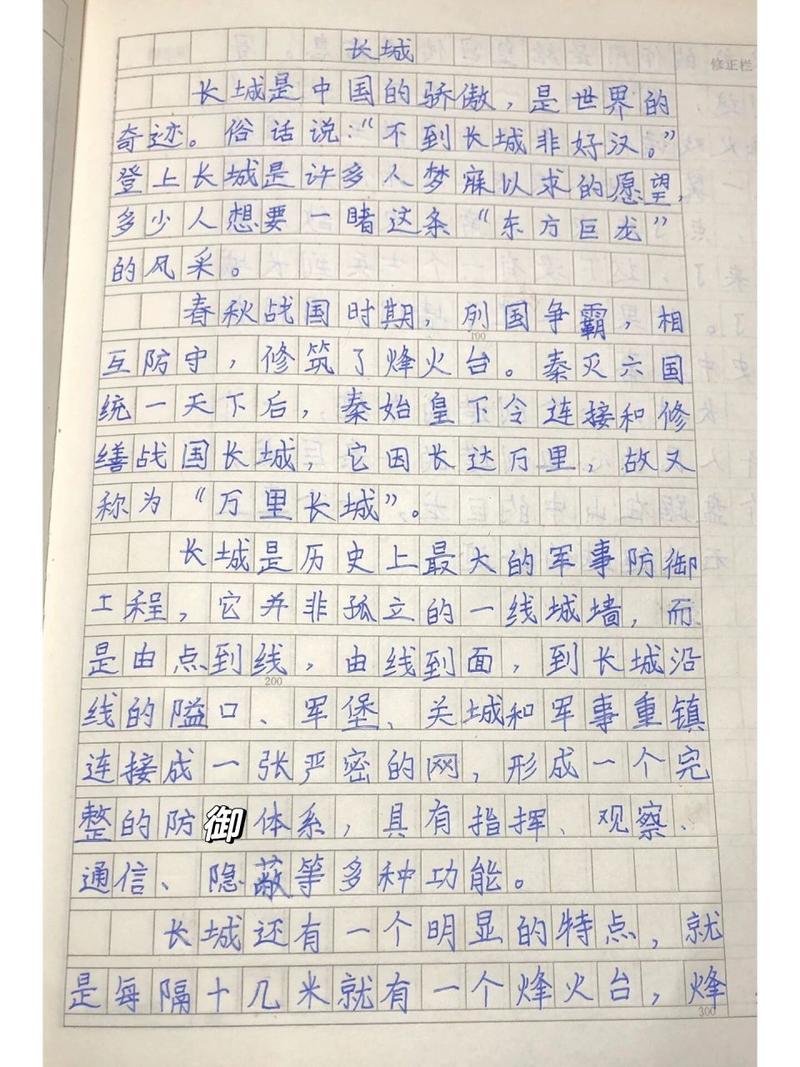 长城
修正栏
长城是中国的骄傲，是世界的
奇迹。俗话说：“不到长城非好汉。”
登上长城是许多人梦寐以求的愿望，
多少人想要一睹这条“东方巨龙”
的风采。
春秋战国时期，列国争霸，相
100
互防守，修筑了烽火台。秦灭六国
统一天下后，秦始皇下令连接和修
缮战国长城，它因长达万里，故又
称为“万里长城”。
长城是历史上最大的军事防御
工程，它并非孤立的一线城墙，而
是由点到线，由线到面，到长城沿
200
线的隘口、军堡、关城和军事重镇
连接成一张严密的网，形成一个完
整的防御体系，具有指挥、观察、
通信、隐蔽等多种功能。
长城还有一个明显的特点，就
是每隔十几米就有一个烽火台，烽
300